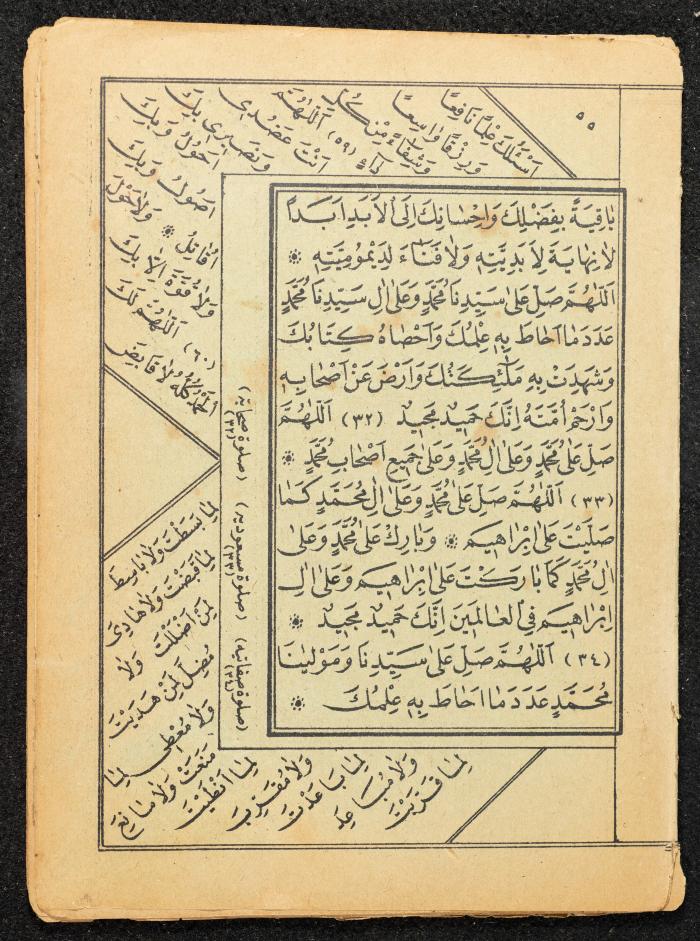 ٥٥
بَاقِيَةً بِفَضْلِكَ وَاِحْسَانِكَ اِلَى الْاَبَدِ اَبَدًا
لَا نِهَايَةَ لِاَبَدِيَّتِهٖ وَلَا فَنَٓاءَ لِدَيْمُومِيَّتِهٖ
اَللّٰهُمَّ صَلِّ عَلٰى سَيِّدِنَا مُحَمَّدٍ وَعَلٰى اٰلِ سَيِّدِنَا مُحَمَّدٍ
عَدَدَ مَا اَحَاطَ بِهٖ عِلْمُكَ وَاَحْصَاهُ كِتَابُكَ
وَشَهِدَتْ بِهٖ مَلٰٓئِكَتُكَ وَارْضَ عَنْ اَصْحَابِهٖ
وَارْحَمْ اُمَّتَهُ اِنَّكَ حَمِيدٌ مَجِيدٌ (٣٢) اَللّٰهُمَّ
صَلِّ عَلٰى مُحَمَّدٍ وَعَلٰى اٰلِ مُحَمَّدٍ وَعَلٰى جَمِيعِ اَصْحَابِ مُحَمَّدٍ
(٣٣) اَللّٰهُمَّ صَلِّ عَلٰى مُحَمَّدٍ وَعَلٰى اٰلِ مُحَمَّدٍ كَمَا
صَلَّيْتَ عَلٰى اِبْرَاهِيمَ وَبَارِكْ عَلٰى مُحَمَّدٍ وَعَلٰى
اٰلِ مُحَمَّدٍ كَمَا بَارَكْتَ عَلٰى اِبْرَاهِيمَ وَعَلٰى اٰلِ
اِبْرَاهِيمَ فِي الْعَالَمِينَ اِنَّكَ حَمِيدٌ مَجِيدٌ
(٣٤) اَللّٰهُمَّ صَلِّ عَلٰى سَيِّدِنَا وَمَوْلٰينَا
مُحَمَّدٍ عَدَدَ مَا اَحَاطَ بِهٖ عِلْمُكَ
(صلوة صحابة) (٣٢)
(صلوة مسعودية) (٣٣)
(صلوة صفاتية) (٣٤)
اَسْئَلُكَ عِلْمًا نَافِعًا
وَرِزْقًا وَاسِعًا
وَشِفَٓاءً مِنْ كُلِّ
دَٓاءٍ (٥٩) اَللّٰهُمَّ
اَنْتَ عَضُدِي
وَنَصِيرِي بِكَ
اَحُولُ وَبِكَ
اَصُولُ وَبِكَ
اُقَاتِلُ وَلَا حَوْلَ
وَلَا قُوَّةَ اِلَّا بِكَ
(٦٠) اَللّٰهُمَّ لَكَ
الْحَمْدُ كُلُّهُ لَا قَابِضَ
لِمَا بَسَطْتَ وَلَا بَاسِطَ
لِمَا قَبَضْتَ وَلَا هَادِيَ
لِمَنْ اَضْلَلْتَ وَلَا
مُضِلَّ لِمَنْ هَدَيْتَ
وَلَا مُعْطِيَ لِمَا
مَنَعْتَ وَلَا مَانِعَ
لِمَا اَعْطَيْتَ
وَلَا مُقَرِّبَ
لِمَا بَاعَدْتَ
وَلَا مُبَاعِدَ
لِمَا قَرَّبْتَ